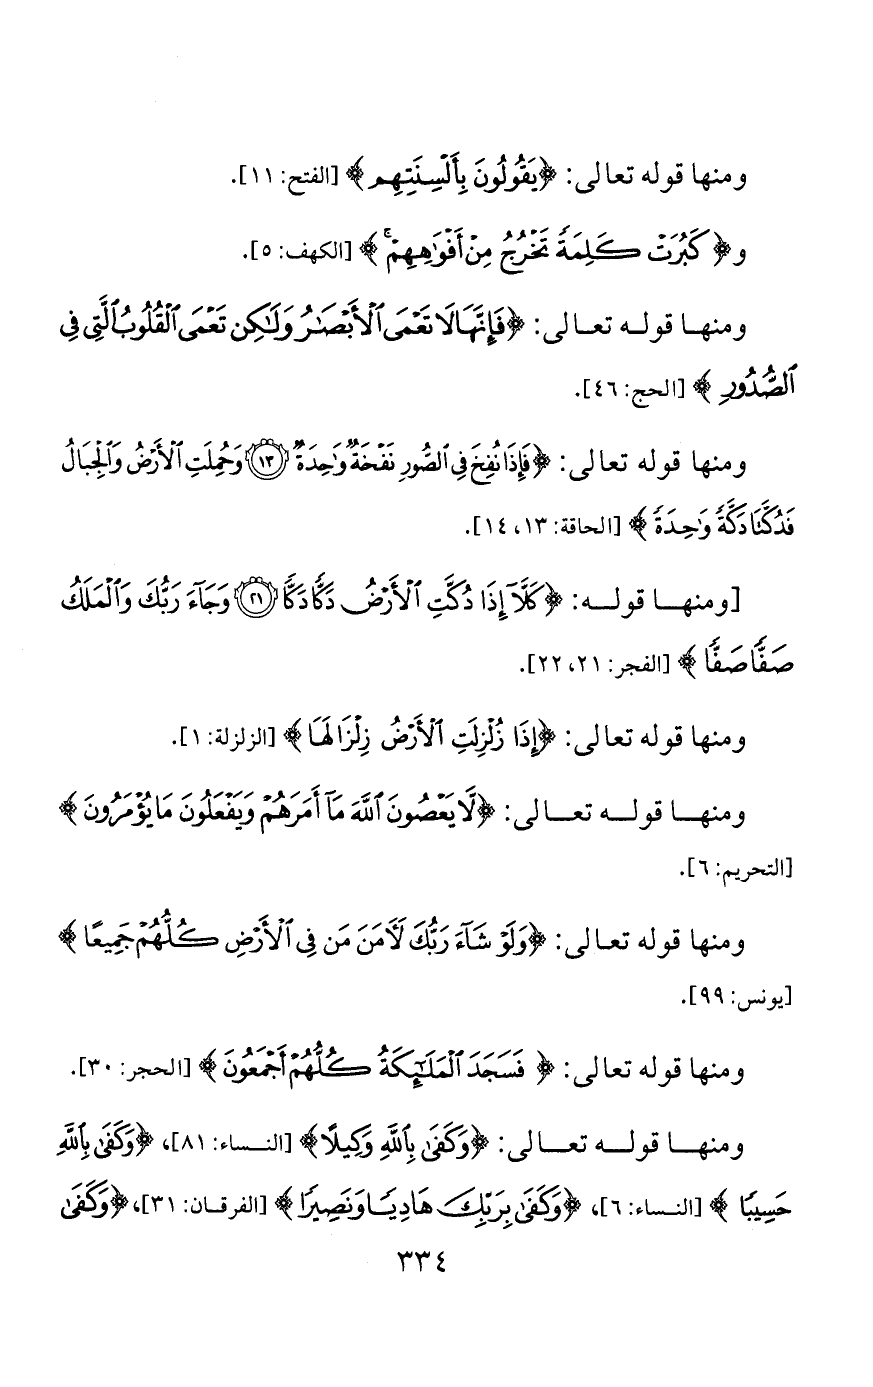 ومنها قوله تعالى: ﴿يَقُولُونَ بِأَلْسِنَتِهِم﴾ [الفتح: ١١].
و﴿كَبُرَتْ كَلِمَةً تَخْرُجُ مِنْ أَفْوَٰهِهِمْ ۚ﴾ [الكهف: ٥].
ومنهـا قولـه تعـالى: ﴿فَإِنَّهَا لَا تَعْمَى ٱلْأَبْصَـٰرُ وَلَـٰكِن تَعْمَى ٱلْقُلُوبُ ٱلَّتِى فِى
ٱلصُّدُورِ﴾ [الحج: ٤٦].
ومنها قوله تعالى: ﴿فَإِذَا نُفِخَ فِى ٱلصُّورِ نَفْخَةٌ وَٰحِدَةٌ ١٣ وَحُمِلَتِ ٱلْأَرْضُ وَٱلْجِبَالُ
فَدُكَّتَا دَكَّةً وَٰحِدَةً﴾ [الحاقة: ١٣، ١٤].
[ومنهـا قولـه: ﴿كَلَّآ إِذَا دُكَّتِ ٱلْأَرْضُ دَكًّا دَكًّا ٢١ وَجَآءَ رَبُّكَ وَٱلْمَلَكُ
صَفًّا صَفًّا﴾ [الفجر: ٢١، ٢٢].
ومنها قوله تعالى: ﴿إِذَا زُلْزِلَتِ ٱلْأَرْضُ زِلْزَالَهَا﴾ [الزلزلة: ١].
ومنهـا قولـه تعـالى: ﴿لَّا يَعْصُونَ ٱللَّهَ مَآ أَمَرَهُمْ وَيَفْعَلُونَ مَا يُؤْمَرُونَ﴾
[التحريم: ٦].
ومنها قوله تعـالى: ﴿وَلَوْ شَآءَ رَبُّكَ لَآمَنَ مَن فِى ٱلْأَرْضِ كُلُّهُمْ جَمِيعًا﴾
[يونس: ٩٩].
ومنها قوله تعالى: ﴿فَسَجَدَ ٱلْمَلَـٰٓئِكَةُ كُلُّهُمْ أَجْمَعُونَ﴾ [الحجر: ٣٠].
ومنهـا قولـه تعـالى: ﴿وَكَفَىٰ بِٱللَّهِ وَكِيلًا﴾ [النساء: ٨١]، ﴿وَكَفَىٰ بِٱللَّهِ
حَسِيبًا﴾ [النساء: ٦]، ﴿وَكَفَىٰ بِرَبِّكَ هَادِيًا وَنَصِيرًا﴾ [الفرقان: ٣١]، ﴿وَكَفَىٰ
٣٣٤